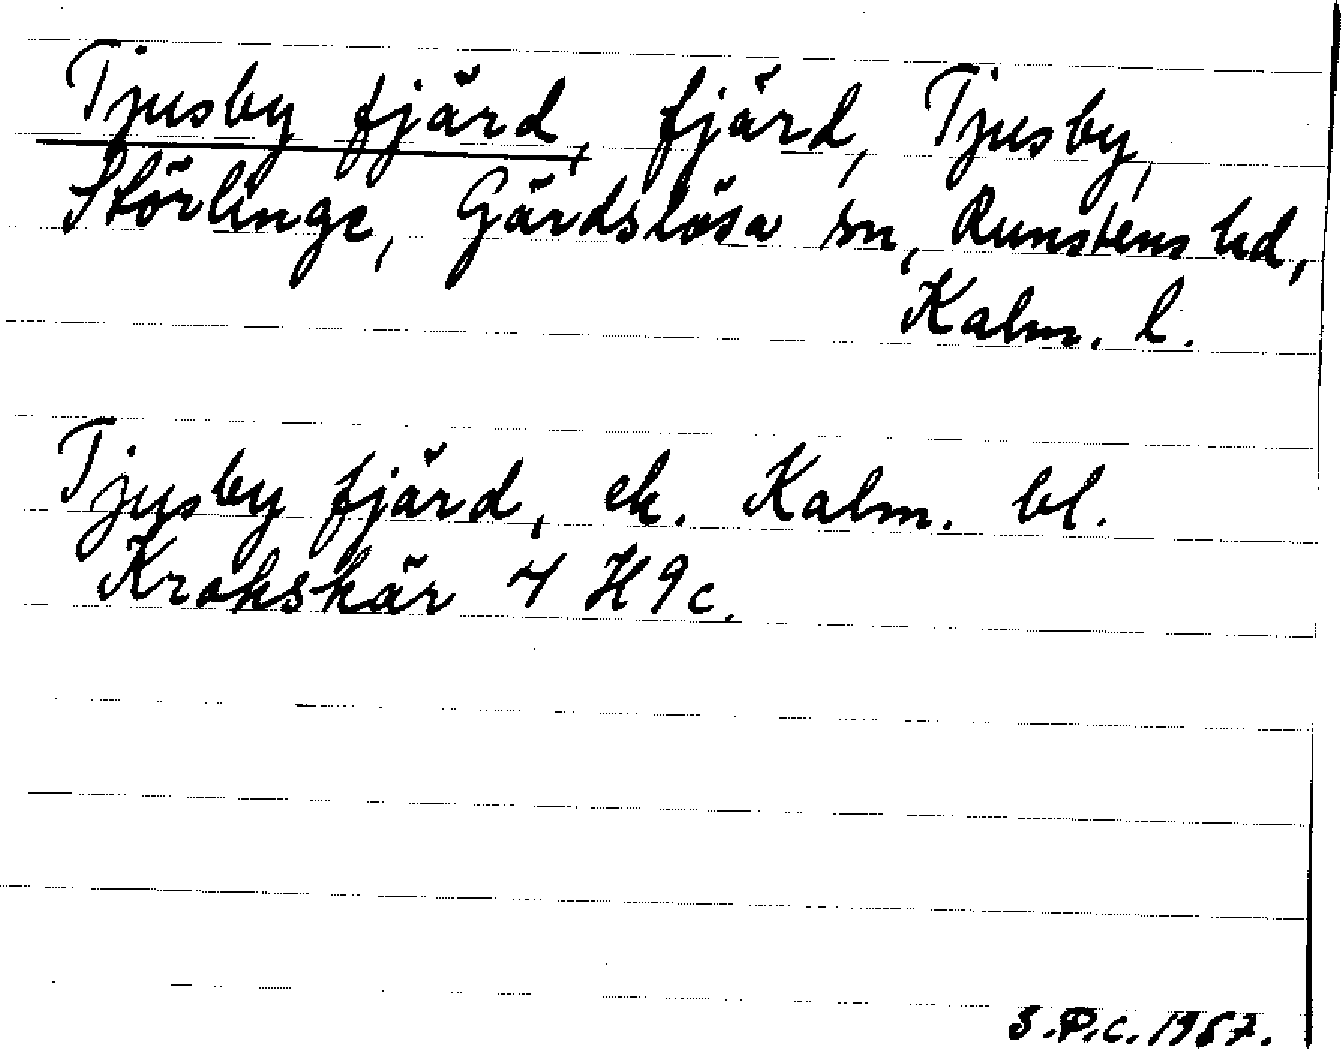 Tjusby fjärd, fjärd, Tjusby,
Störlinge, Gärdslösa sn, Runstens hd,
Kalm. l.
Tjusby fjärd, ek. Kalm. bl.
Krokskär 4 H9c.
S.P.C. 1957.